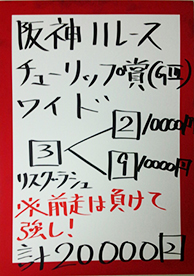 阪神11レース
チューリップ賞(GⅡ)
ワイド
3
2 10000円
9 10000円
リスグラシュ
※前走は負けて
強し!
計20000円